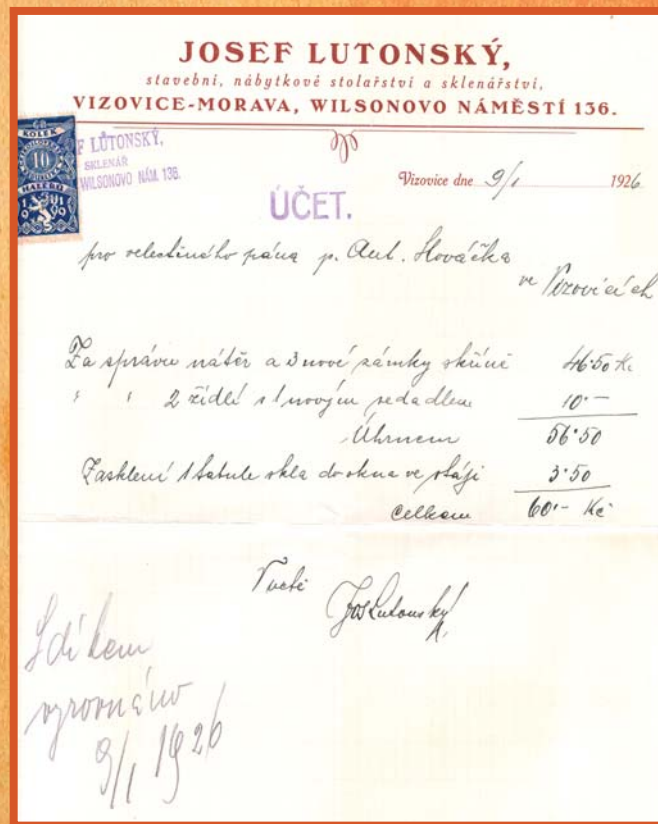 JOSEF LUTONSKÝ,
stavební, nábytkové stolařství a sklenářství,
VIZOVICE-MORAVA, WILSONOVO NÁMĚSTÍ 136.
KOLEK
10
HALÉŘŮ
F LUTONSKÝ,
SKLENÁŘ
WILSONOVO NÁM. 136.
Vizovice dne 9/1 1926
ÚČET.
pro velectěného pána p. Ant. Slováčka
ve Vizovicích
Za správu nátěr a 3 nové zámky skříně 46·50 Kč
" " 2 židlí s 1 novým sedadlem 10·—
Úhrnem 56·50
Zasklení 1 tabule skla do okna ve stáji 3·50
Celkem 60·- Kč
V uctě
Jos Lutonský
S díkem
vyrovnáno
9/1 1926